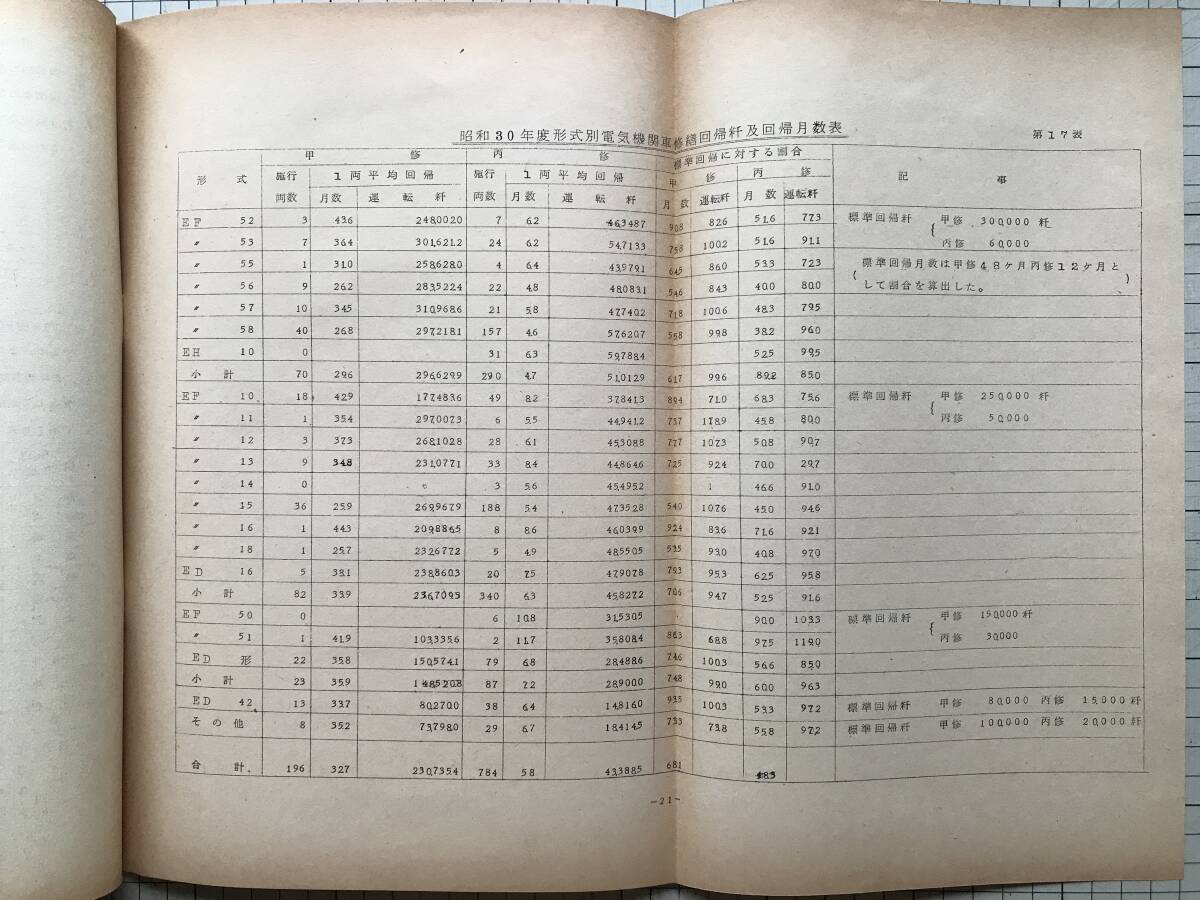 昭和30年度形式別電気機関車修繕回帰粁及回帰月数表
第17表
甲修 丙修 標準回帰に対する割合
形式 施行両数 1両平均回帰 施行両数 1両平均回帰 甲修 丙修 記事
月数 運転粁 月数 運転粁 月数 運転粁 月数 運転粁
EF 52 3 43.6 248,002.0 7 6.2 46,348.7 90.8 82.6 51.6 77.3 標準回帰粁 { 甲修 300,000 粁
〃 53 7 36.4 301,621.2 24 6.2 54,713.3 75.8 100.2 51.6 91.1 丙修 60,000
〃 55 1 31.0 258,628.0 4 6.4 43,979.1 64.5 86.0 53.3 72.3 ( 標準回帰月数は甲修48ケ月丙修12ケ月と
〃 56 9 26.2 283,522.4 22 4.8 48,083.1 54.6 84.3 40.0 80.0 して割合を算出した。 )
〃 57 10 34.5 310,968.6 21 5.8 47,740.2 71.8 100.6 48.3 79.5
〃 58 40 26.8 297,218.1 157 4.6 57,620.7 55.8 99.8 38.2 96.0
EH 10 0 31 6.3 59,788.4 52.5 99.5
小計 70 29.6 296,629.9 290 4.7 51,012.9 61.7 99.6 89.2 85.0
EF 10 18 42.9 177,483.6 49 8.2 37,841.3 89.4 71.0 68.3 75.6 標準回帰粁 { 甲修 250,000 粁
〃 11 1 35.4 297,007.3 6 5.5 44,941.2 73.7 178.9 45.8 80.0 丙修 50,000
〃 12 3 37.3 268,102.8 28 6.1 45,308.8 77.7 107.3 50.8 90.7
〃 13 9 34.8 231,077.1 33 8.4 44,864.6 72.5 92.4 70.0 29.7
〃 14 0 3 5.6 45,495.2 46.6 91.0
〃 15 36 25.9 269,967.9 188 5.4 47,352.8 54.0 107.6 45.0 94.6
〃 16 1 44.3 209,886.5 8 8.6 46,039.9 92.4 83.6 71.6 92.1
〃 18 1 25.7 232,677.2 5 4.9 48,550.5 53.5 93.0 40.8 97.0
ED 16 5 38.1 238,860.3 20 7.5 47,907.8 79.3 95.3 62.5 95.8
小計 82 33.9 236,709.3 340 6.3 45,827.2 70.6 94.7 52.5 91.6
EF 50 0 6 10.8 31,530.5 90.0 103.3 標準回帰粁 { 甲修 150,000 粁
〃 51 1 41.9 103,335.6 2 11.7 35,808.4 86.3 68.8 97.5 119.0 丙修 30,000
ED 形 22 35.8 150,574.1 79 6.8 28,488.6 74.6 100.3 56.6 85.0
小計 23 35.9 148,520.8 87 7.2 28,900.0 74.8 99.0 60.0 96.3
ED 42 13 33.7 80,270.0 38 6.4 14,816.0 93.5 100.3 53.3 97.2 標準回帰粁 甲修 80,000 丙修 15,000 粁
その他 8 35.2 73,798.0 29 6.7 18,414.5 73.3 73.8 55.8 97.2 標準回帰粁 甲修 100,000 丙修 20,000 粁
合計. 196 32.7 230,735.4 784 5.8 43,388.5 68.1 48.3
-21-